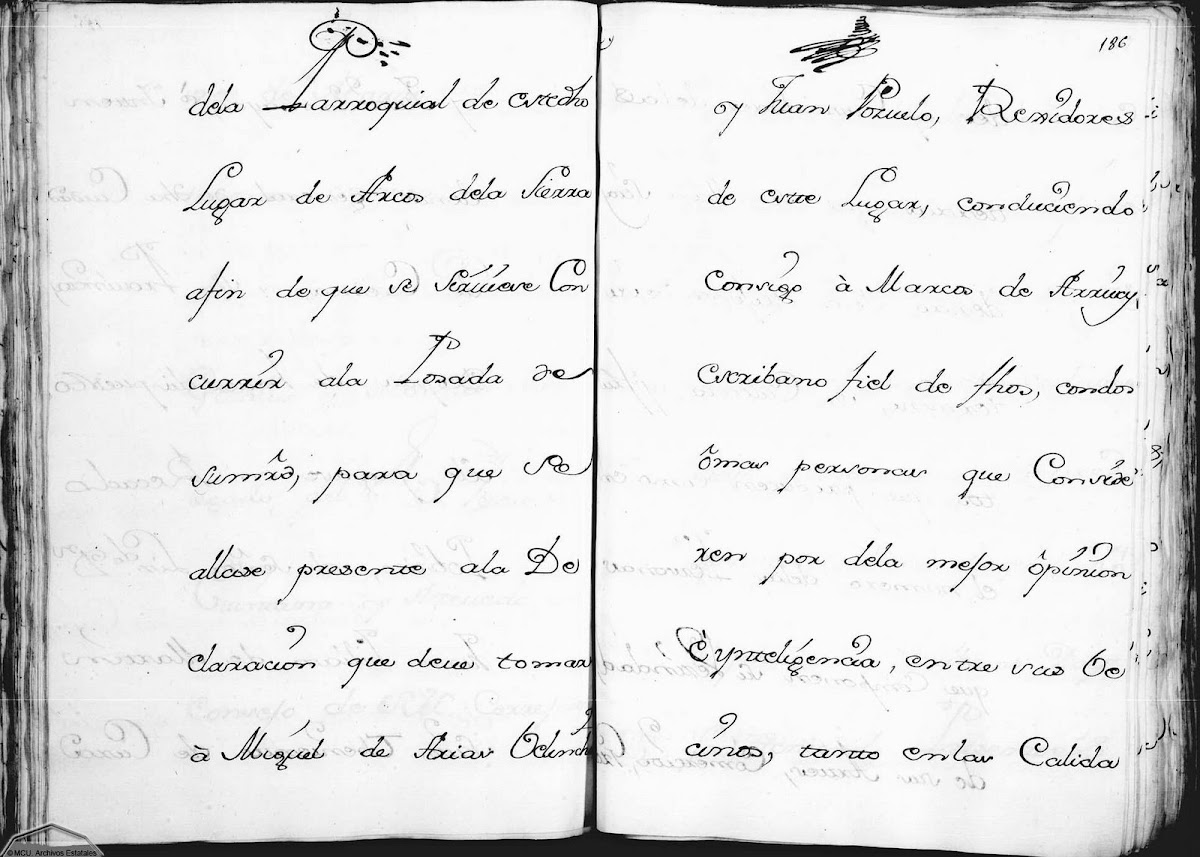 dela Parroquial de este dho
Lugar de Arcos dela Sierra
afin de que se sirviese Con
currir ala Posada de
sumrd, para que se
allase presente ala De
claración que deve tomar
à Miguel de Arias
186
y Juan Pozuelo, Rexidores
de este Lugar, conduciendo
Consigo à Marcos de
escribano fiel de fhos, condos
ômas personas que Conside
ren por dela mejor ôpinion
Eynteligencia, entre sus Ve
cinos, tanto enlas Calida
© MCU. Archivos Estatales